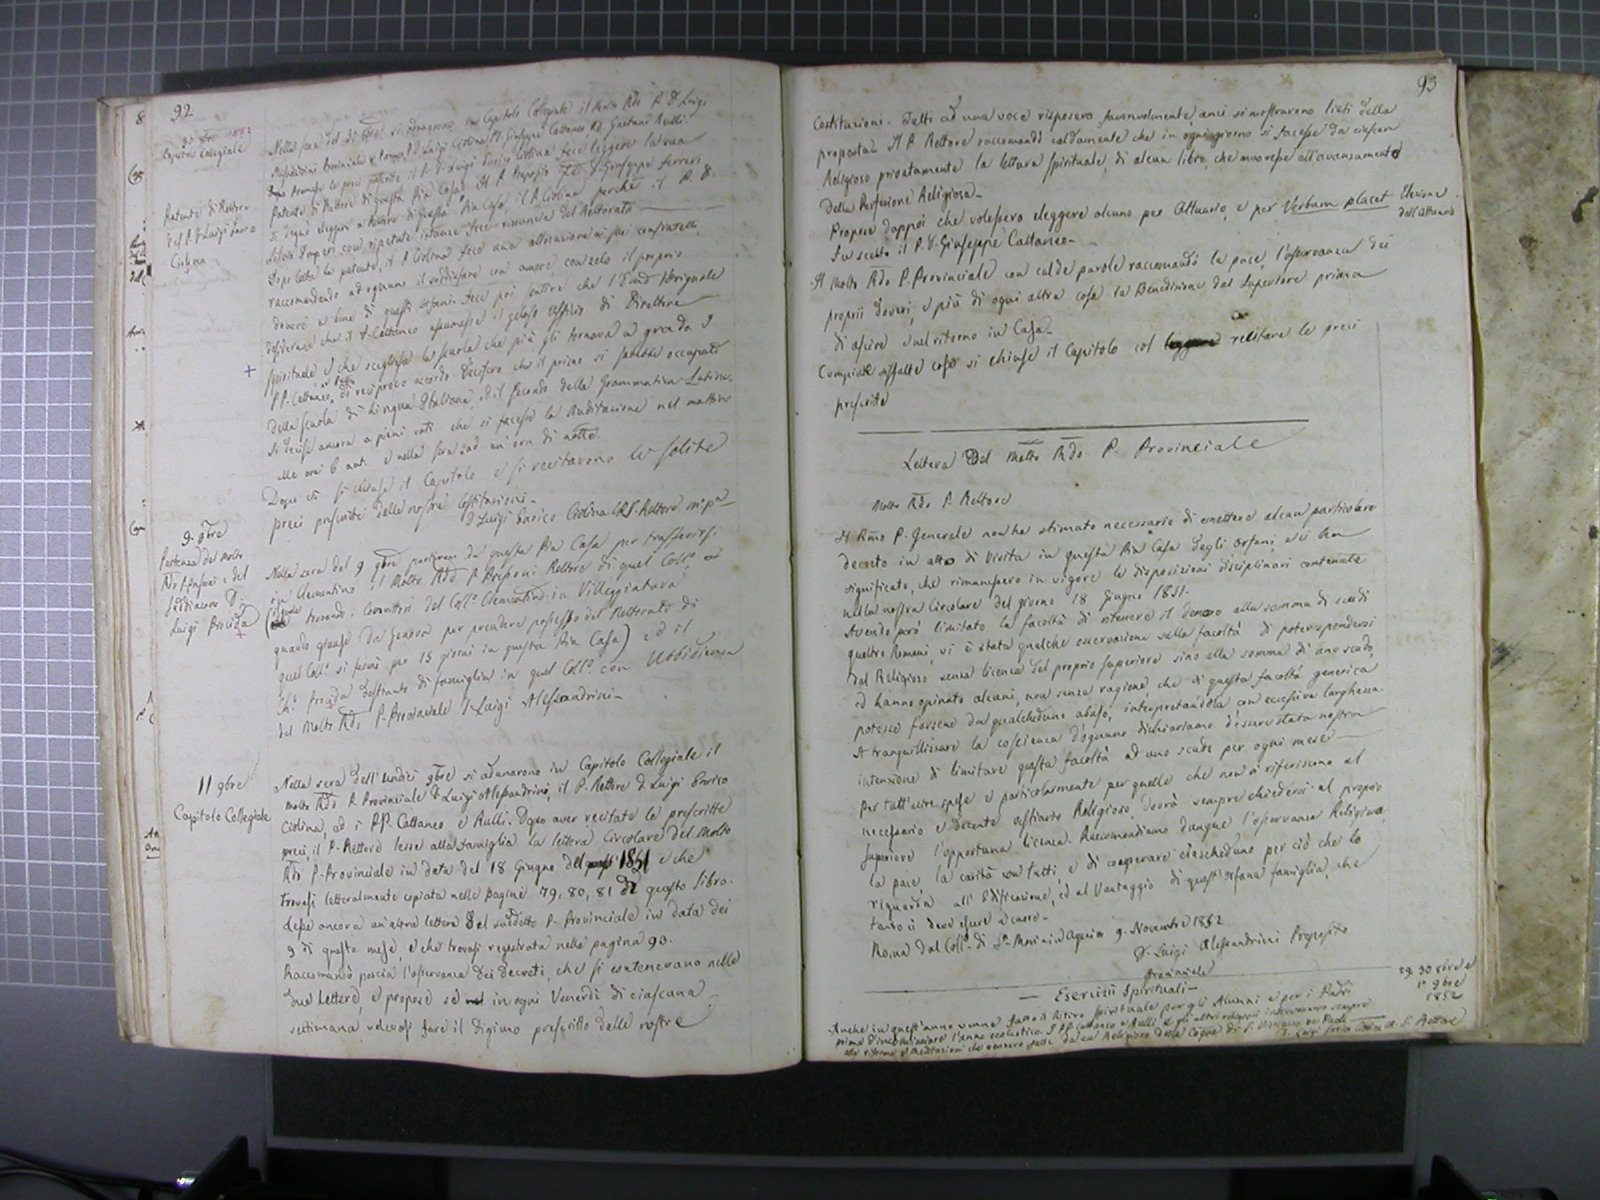 92
30 8bre 1852
Capitolo Collegiale
Nella sera del dì 30 8bre si adunarono in Capitolo Collegiale il Molto Rdo P. D. Luigi
Alessandrini Provinciale D. Luigi Ciolina D. Giuseppe Cattaneo D. Gaetano Rulli.
Premesse le preci il P. D. Luigi Enrico Ciolina fece leggere la sua
Patente di Rettore
del P. D. Luigi Enrico
Ciolina
Patente di Rettore di questa Pia Casa. Il P. Preposito D. Giuseppe Ferreri
si degnò eleggere a Rettore di questa Pia Casa il P. Ciolina perchè il P. D.
Silvio Imperi con ripetute istanze fece rinunzia del Rettorato
Dopo letta la patente, il P. Ciolina fece una allocuzione a' suoi confratelli,
raccomandando ad ognuno il soddisfare con amore e con zelo il proprio
dovere a bene di questi Orfani. Fece poi sentire che
desiderava che il P. Cattaneo assumesse il geloso Uffizio di Direttore
+
spirituale e che scegliesse la scuola che più gli tornava a grado. I
PP. Cattaneo, e Rulli di reciproco accordo decisero che il primo si sarebbe occupato
della scuola di Lingua Italiana, ed il secondo della Grammatica Latina.
Si decise ancora a pieni voti che si facesse la Meditazione nel mattino
alle ore 6 ant. e nella sera ad un' ora di notte.
Dopo ciò si chiuse il Capitolo e si recitarono le solite
preci prescritte dalle nostre Costituzioni.
D. Luigi Enrico Ciolina CRS. Rettore m.pa
9. 9bre
Partenza del Molto
Rdo P. Besponi e del
Suddiacono D.
Luigi Procida
Nella sera del 9 9bre partirono da questa Pia Casa per trasferirsi
in Clementino il Molto Rdo P. Besponi Rettore di quel Coll.o
(il quale trovando i Convittori del Coll.o Clementino in Villeggiatura
quando giunse da Genova per prendere possesso del Rettorato di
quel Coll.o si fermò per 15 giorni in questa Pia Casa) ed il
Ch.o Procida destinato di famiglia in quel Coll.o con Ubbidienza
del Molto Rdo P. Provinciale D. Luigi Alessandrini
11 9bre
Capitolo Collegiale
Nella sera dell'undici 9bre si adunarono in Capitolo Collegiale il
Molto Rdo P. Provinciale D. Luigi Alessandrini, il P. Rettore D. Luigi Enrico
Ciolina, ed i PP. Cattaneo e Rulli. Dopo aver recitate le prescritte
preci, il P. Rettore lesse alla famiglia la lettera Circolare del Molto
Rdo P. Provinciale in data del 18 Giugno del 1851 e che
trovasi letteralmente copiata nelle pagine 79, 80, 81 di questo libro.
Lesse ancora un'altra lettera del suddetto P. Provinciale in data dei
9 di questo mese, e che trovasi registrata nella pagina 93.
Raccomandò poscia l'osservanza dei Decreti, che si contenevano nelle
due lettere, e propose se in ogni Venerdì di ciascuna
settimana volevasi fare il digiuno prescritto dalle nostre
93
Costituzioni. Tutti ad una voce risposero favorevolmente, anzi si mostrarono lieti della
proposta. Il P. Rettore raccomandò caldamente che in ogni giorno si facesse da ciascun
Religioso privatamente la lettura spirituale, di alcun libro, che muovesse all'avanzamento
della Perfezione Religiosa.
Propose dappoi che volessero eleggere alcuno per Attuario, e per Verbum placet
Elezione
dell'Attuario
fu scelto il P. D. Giuseppe Cattaneo.
Il Molto Rdo P. Provinciale con calde parole raccomandò la pace, l'osservanza dei
proprii doveri, e più di ogni altra cosa la Benedizione dal Superiore prima
di uscire e nel ritorno in Casa.
Compiute siffatte cose si chiuse il Capitolo col recitare le preci
prescritte
Lettera Del Molto Rdo P. Provinciale
Molto Rdo P. Rettore
Il Rmo P. Generale non ha stimato necessario di emettere alcun particolare
decreto in atto di Visita in questa Pia Casa degli Orfani, e si ha
significato, che rimanessero in vigore le disposizioni disciplinari contenute
nella nostra Circolare del giorno 18 Giugno 1851.
Avendo però limitato la facoltà di ritenere il denaro alla somma di scudi
quattro Romani, vi è stata qualche osservazione sulla facoltà di potersi spendere
dal Religioso senza licenza del proprio Superiore sino alla somma di uno scudo,
ed hanno opinato alcuni, non senza ragione che di questa facoltà generica
potesse forse da qualcheduno abuso, interpretandola con eccessiva larghezza.
A tranquillizzare la coscienza d'ognuno dichiariamo d'essere stata nostra
intenzione di limitare questa facoltà ad uno scudo per ogni mese
Per tutt'altre spese e particolarmente per quelle che non si riferiscono al
necessario e decente vestiario Religioso dovrà sempre chiedersi al proprio
Superiore l'opportuna licenza. Raccomandiamo dunque l'osservanza Religiosa
la pace, la carità con tutti, e di cooperare ciascheduno per ciò che lo
riguarda all'Edificazione, ed al Vantaggio di quest'Orfana famiglia, che
tanto ci deve essere a cuore.
Roma dal Coll.o di S.a Maria in Aquiro 9. Novembre 1852
D. Luigi Alessandrini Preposito
Provinciale
29. 30 8bre e
1° 9bre
1852
Esercizii Spirituali
Anche in quest'anno venne fatto il Ritiro Spirituale per gli Alunni e per i Padri
prima d'incominciare l'anno scolastico. I PP. Cattaneo e Rulli, e gli altri religiosi intervennero sempre
alle riforme e Meditazioni che vennero fatte da un Religioso della Congne di S. Vincenzo de' Paoli
D. Luigi Enrico Ciolina P. Rettore